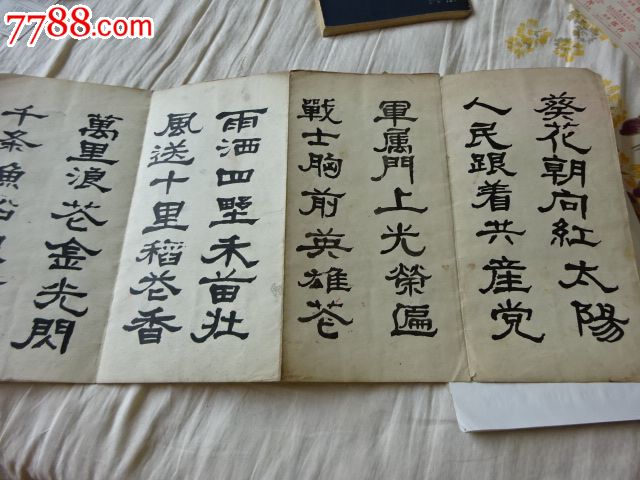 7788.com
葵花朝向紅太陽
人民跟着共産党
軍属門上光榮匾
戰士胸前英雄花
雨洒四野禾苗壮
風送十里稻花香
萬里浪花金光閃
千条漁船